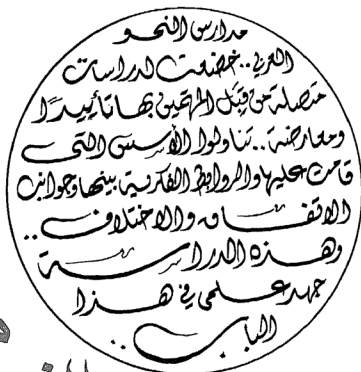 مدارس النحو
العربي .. خضعت لدراسات
متصلة من قبل المهتمين بها تأييدًا
ومعارضة .. تناولوا الأسس التى
قامت عليها والروابط الفكرية بينها وجوانب
الاتفاق والاختلاف ..
وهذه الدراسة
جهد علمى في هذا
الباب ..